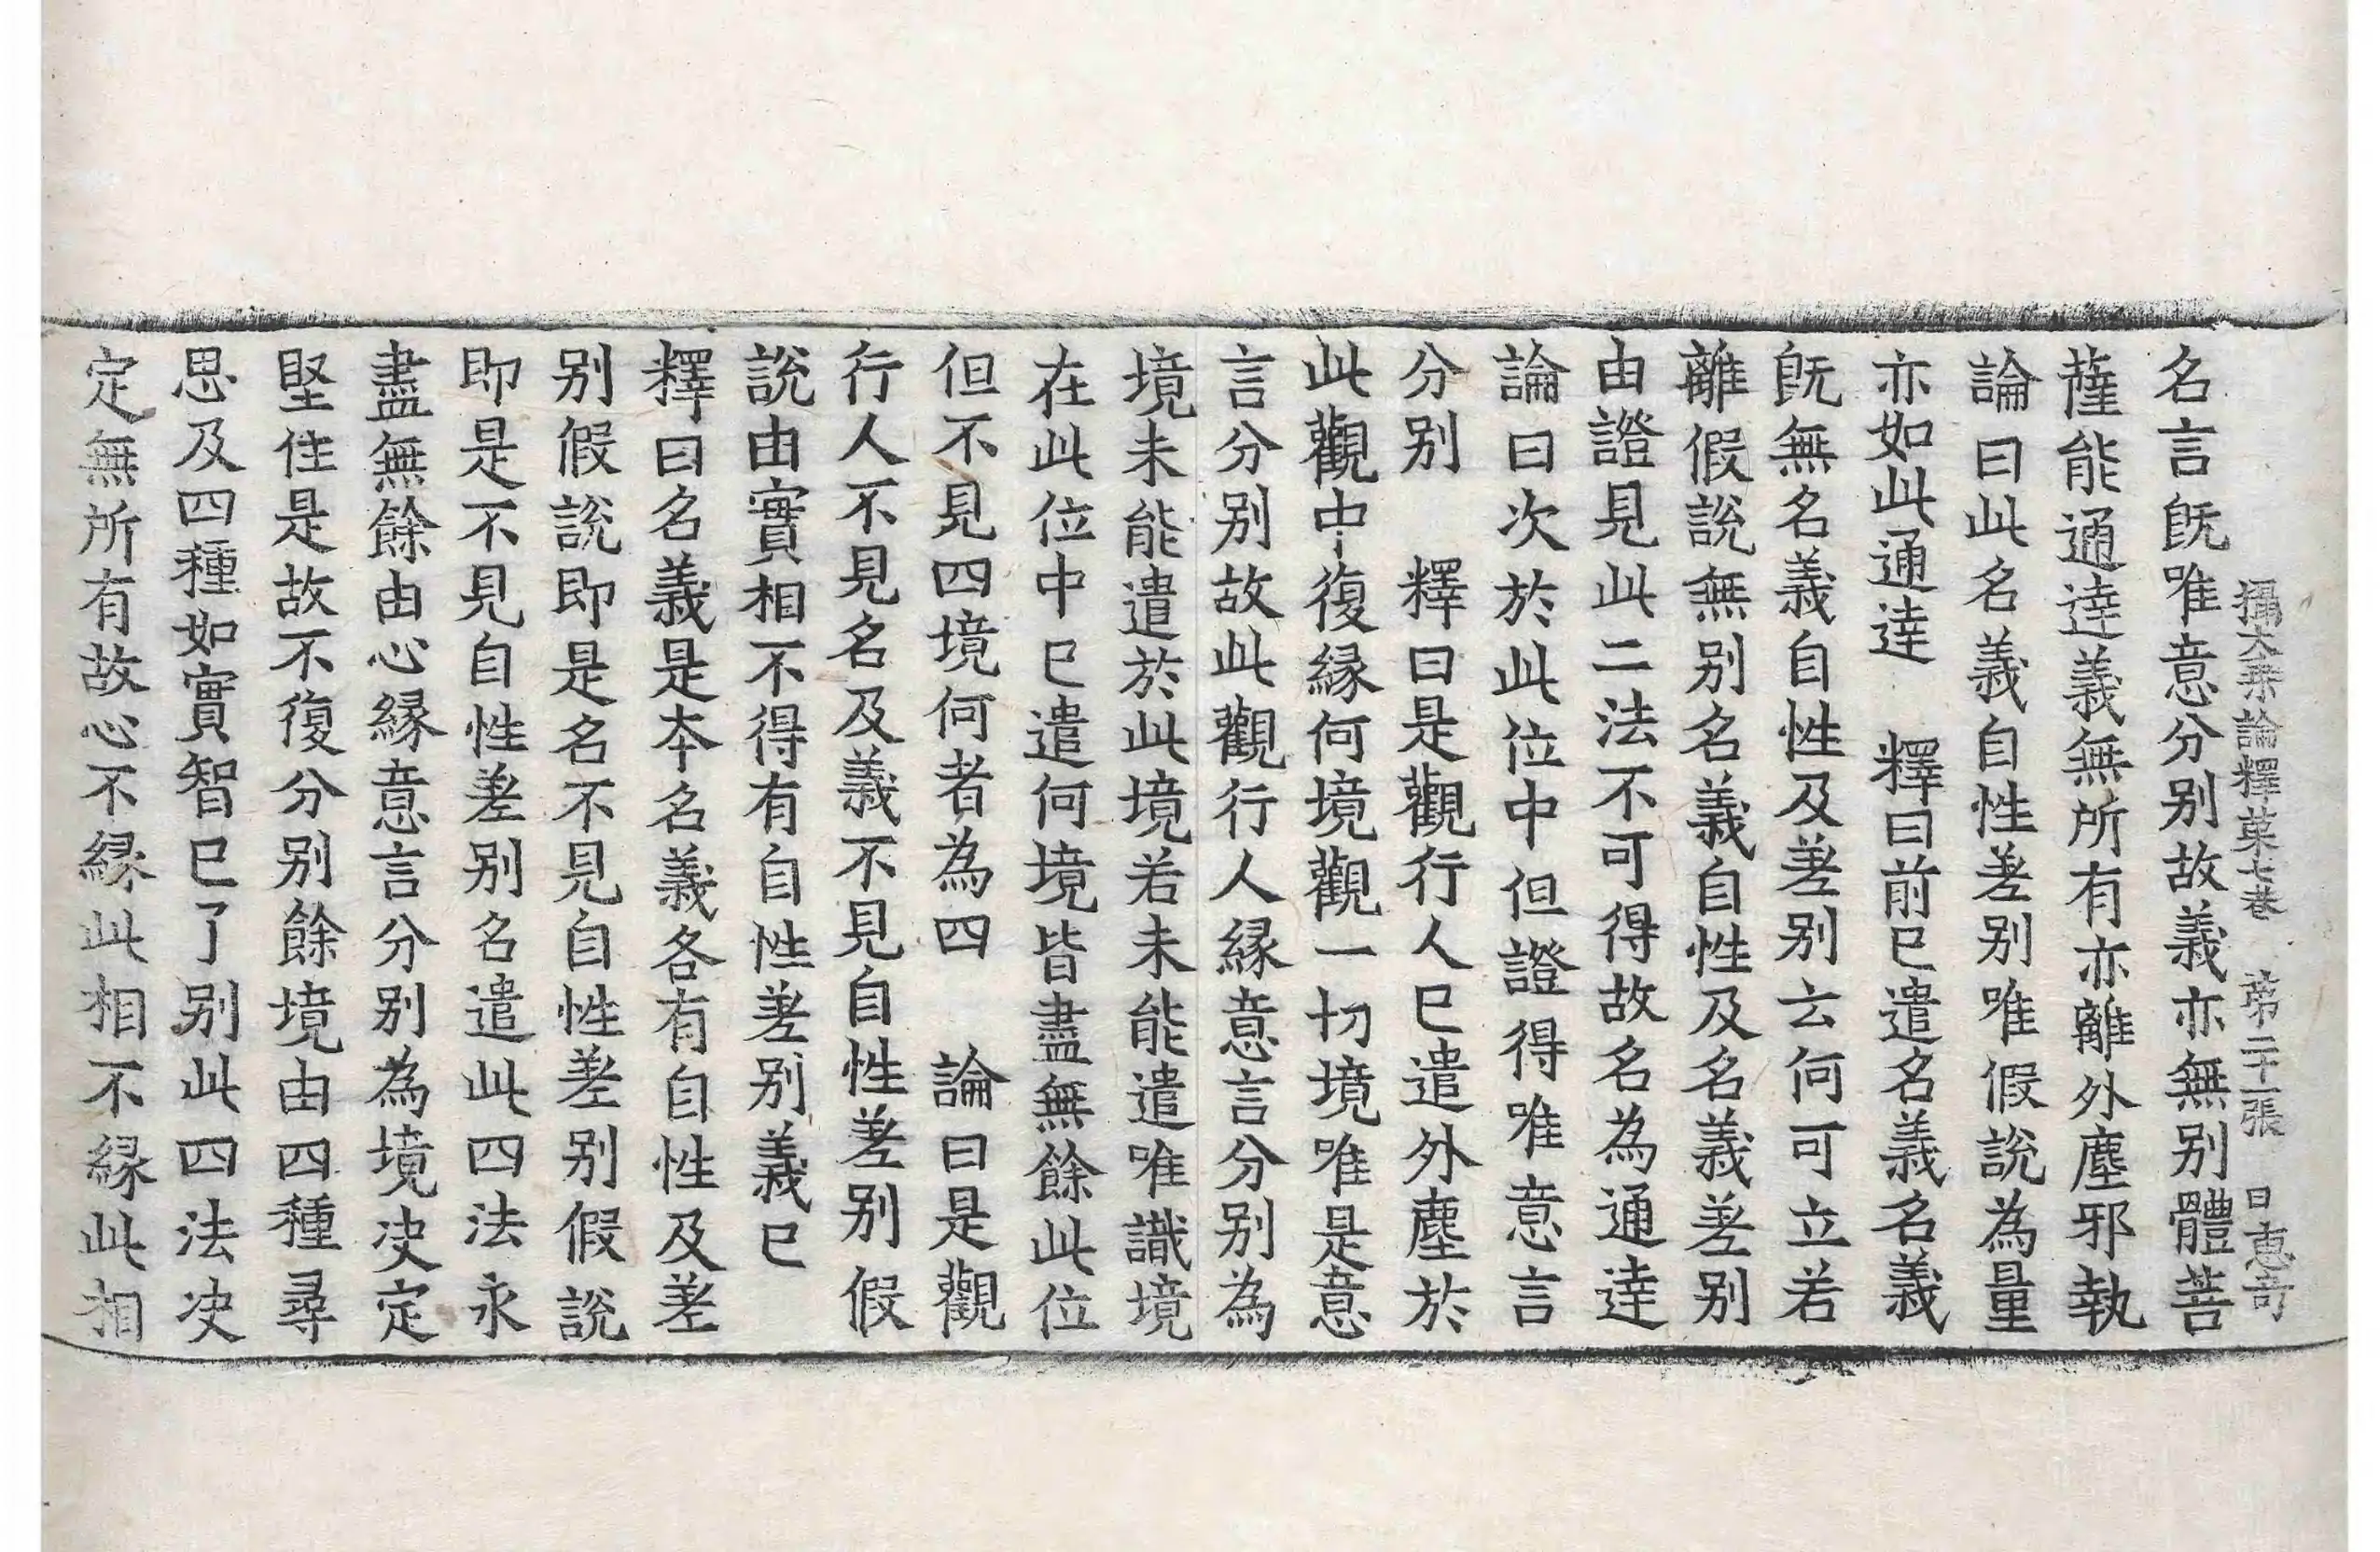 攝大乗論釋苐七卷 苐二十一張 日 恵奇
名言旣唯意分別故義亦無別體菩
薩能通達義無所有亦離外塵邪執
論曰此名義自性差別唯假說為量
亦如此通達 釋曰前已遣名義名義
旣無名義自性及差別云何可立若
離假說無別名義自性及名義差別
由證見此二法不可得故名為通達
論曰次於此位中但證得唯意言
分別 釋曰是觀行人已遣外塵於
此觀中復緣何境觀一切境唯是意
言分別故此觀行人緣意言分別為
境未能遣於此境若未能遣唯識境
在此位中已遣何境皆盡無餘此位
但不見四境何者為四 論曰是觀
行人不見名及義不見自性差別假
說由實相不得有自性差別義已
釋曰名義是本名義各有自性及差
別假說即是名不見自性差別假說
即是不見自性差別名遣此四法永
盡無餘由心緣意言分別為境决定
堅住是故不復分別餘境由四種尋
思及四種如實智已了別此四法决
定無所有故心不緣此相不緣此相